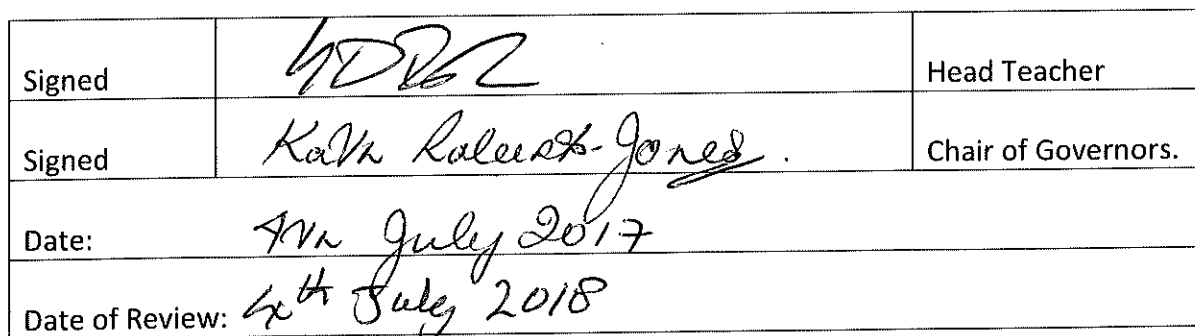 Signed Head Teacher
Signed Kath Roberts-Jones. Chair of Governors.
Date: 4th July 2017
Date of Review: 4th July 2018